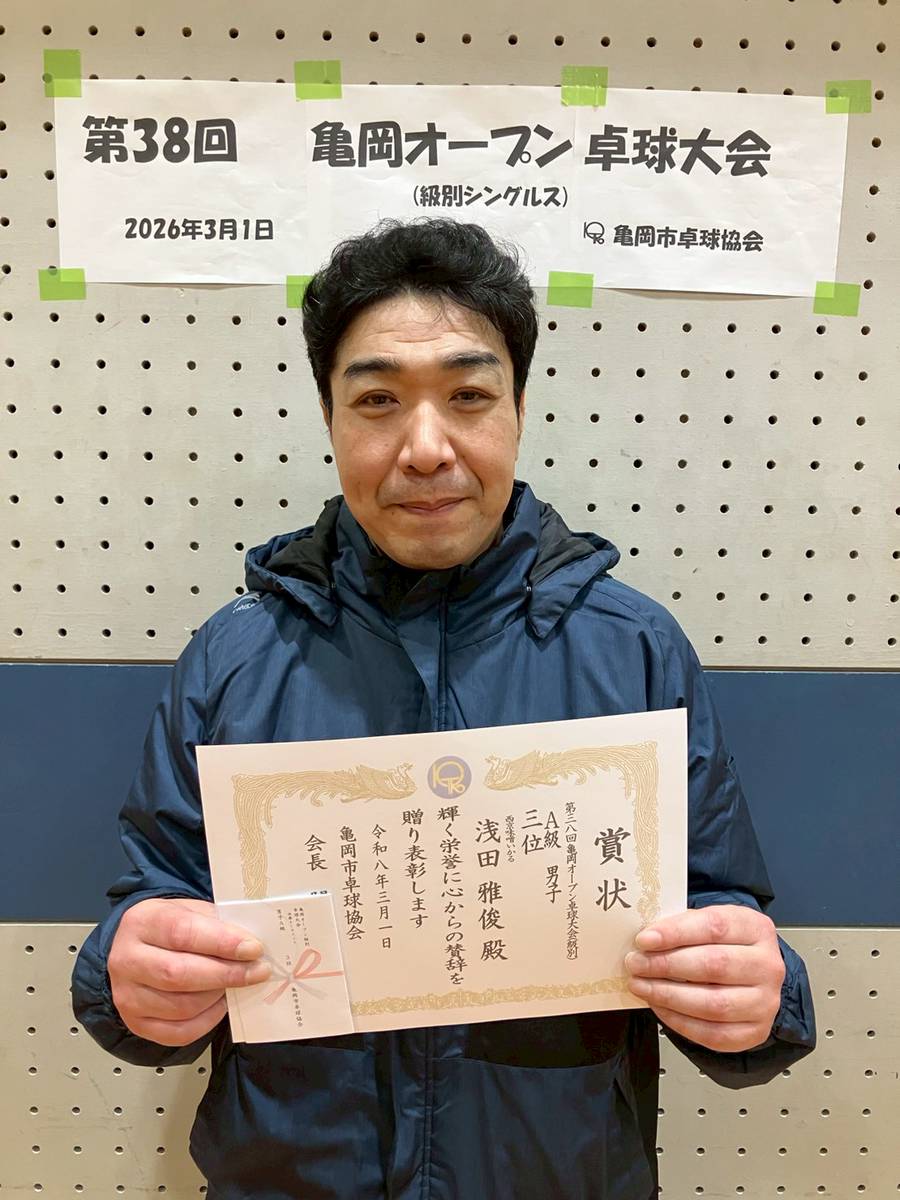 第38回 亀岡オープン 卓球大会
(級別シングルス)
2026年3月1日
亀岡市卓球協会
賞状
第三八回亀岡オープン卓球大会(級別)
A級 男子
三位
西京味噌いかる
浅田 雅俊 殿
輝く栄誉に心からの賛辞を
贈り表彰します
令和八年三月一日
亀岡市卓球協会
会長
亀岡オープン級別
卓球大会
男子A級
3位
亀岡市卓球協会